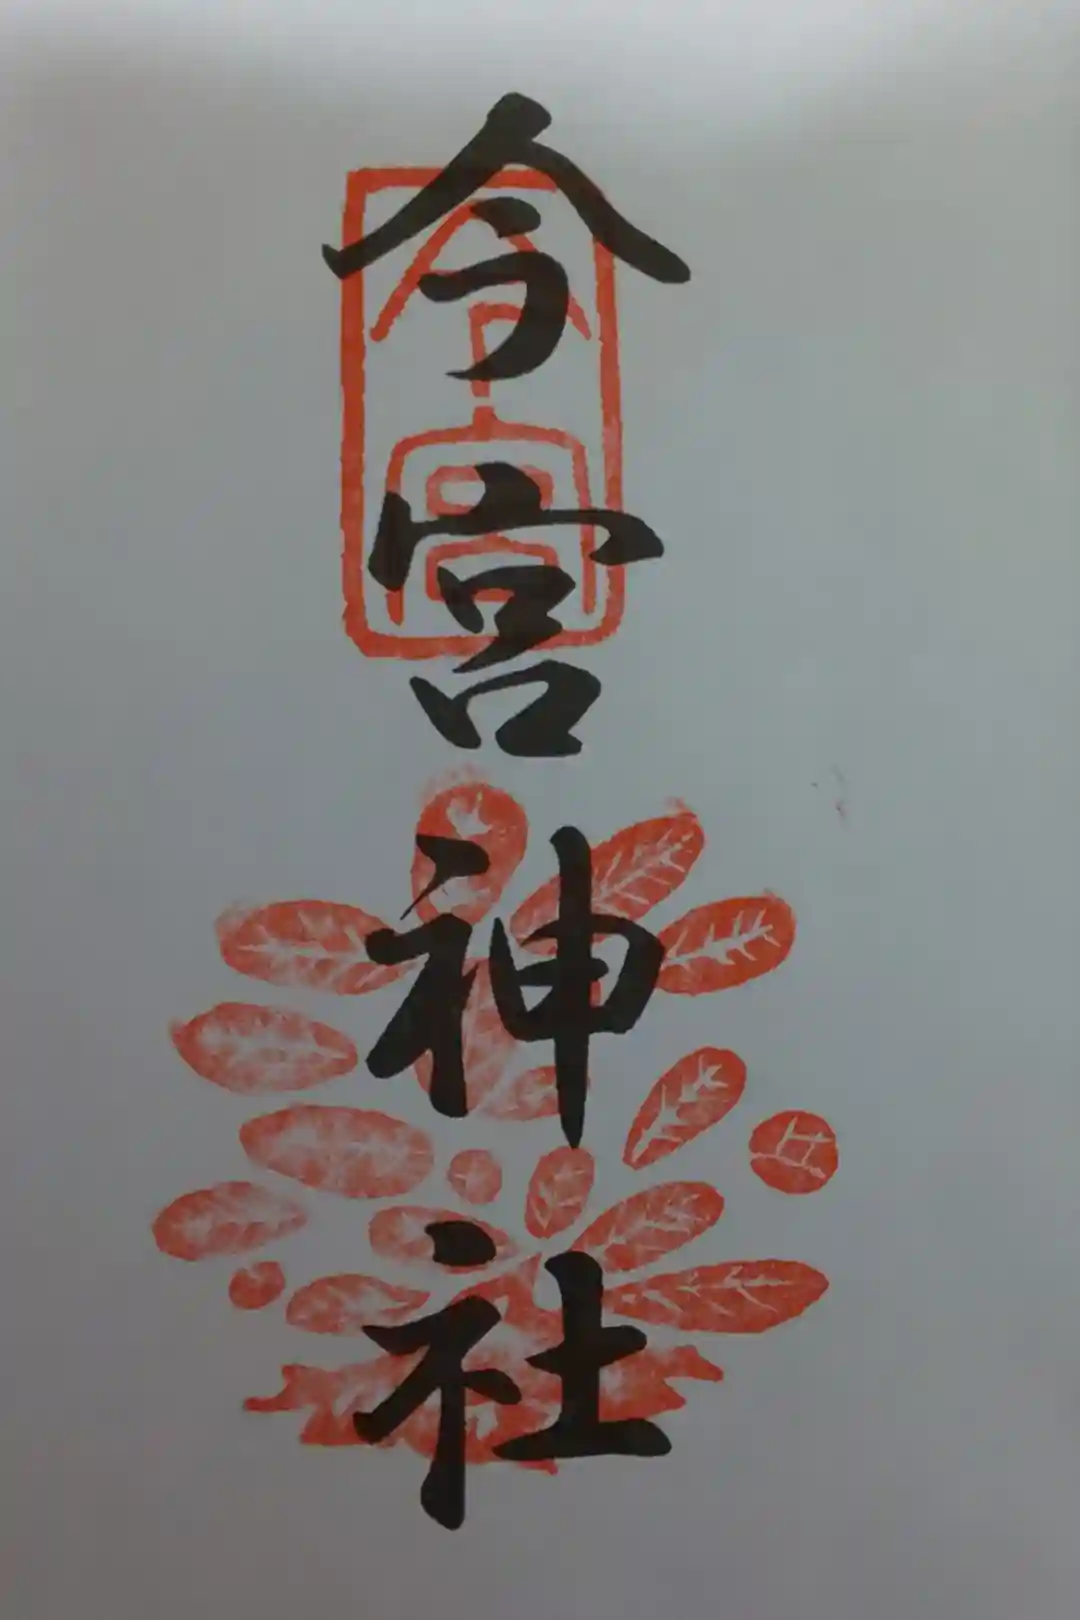 今宮神社
今宮